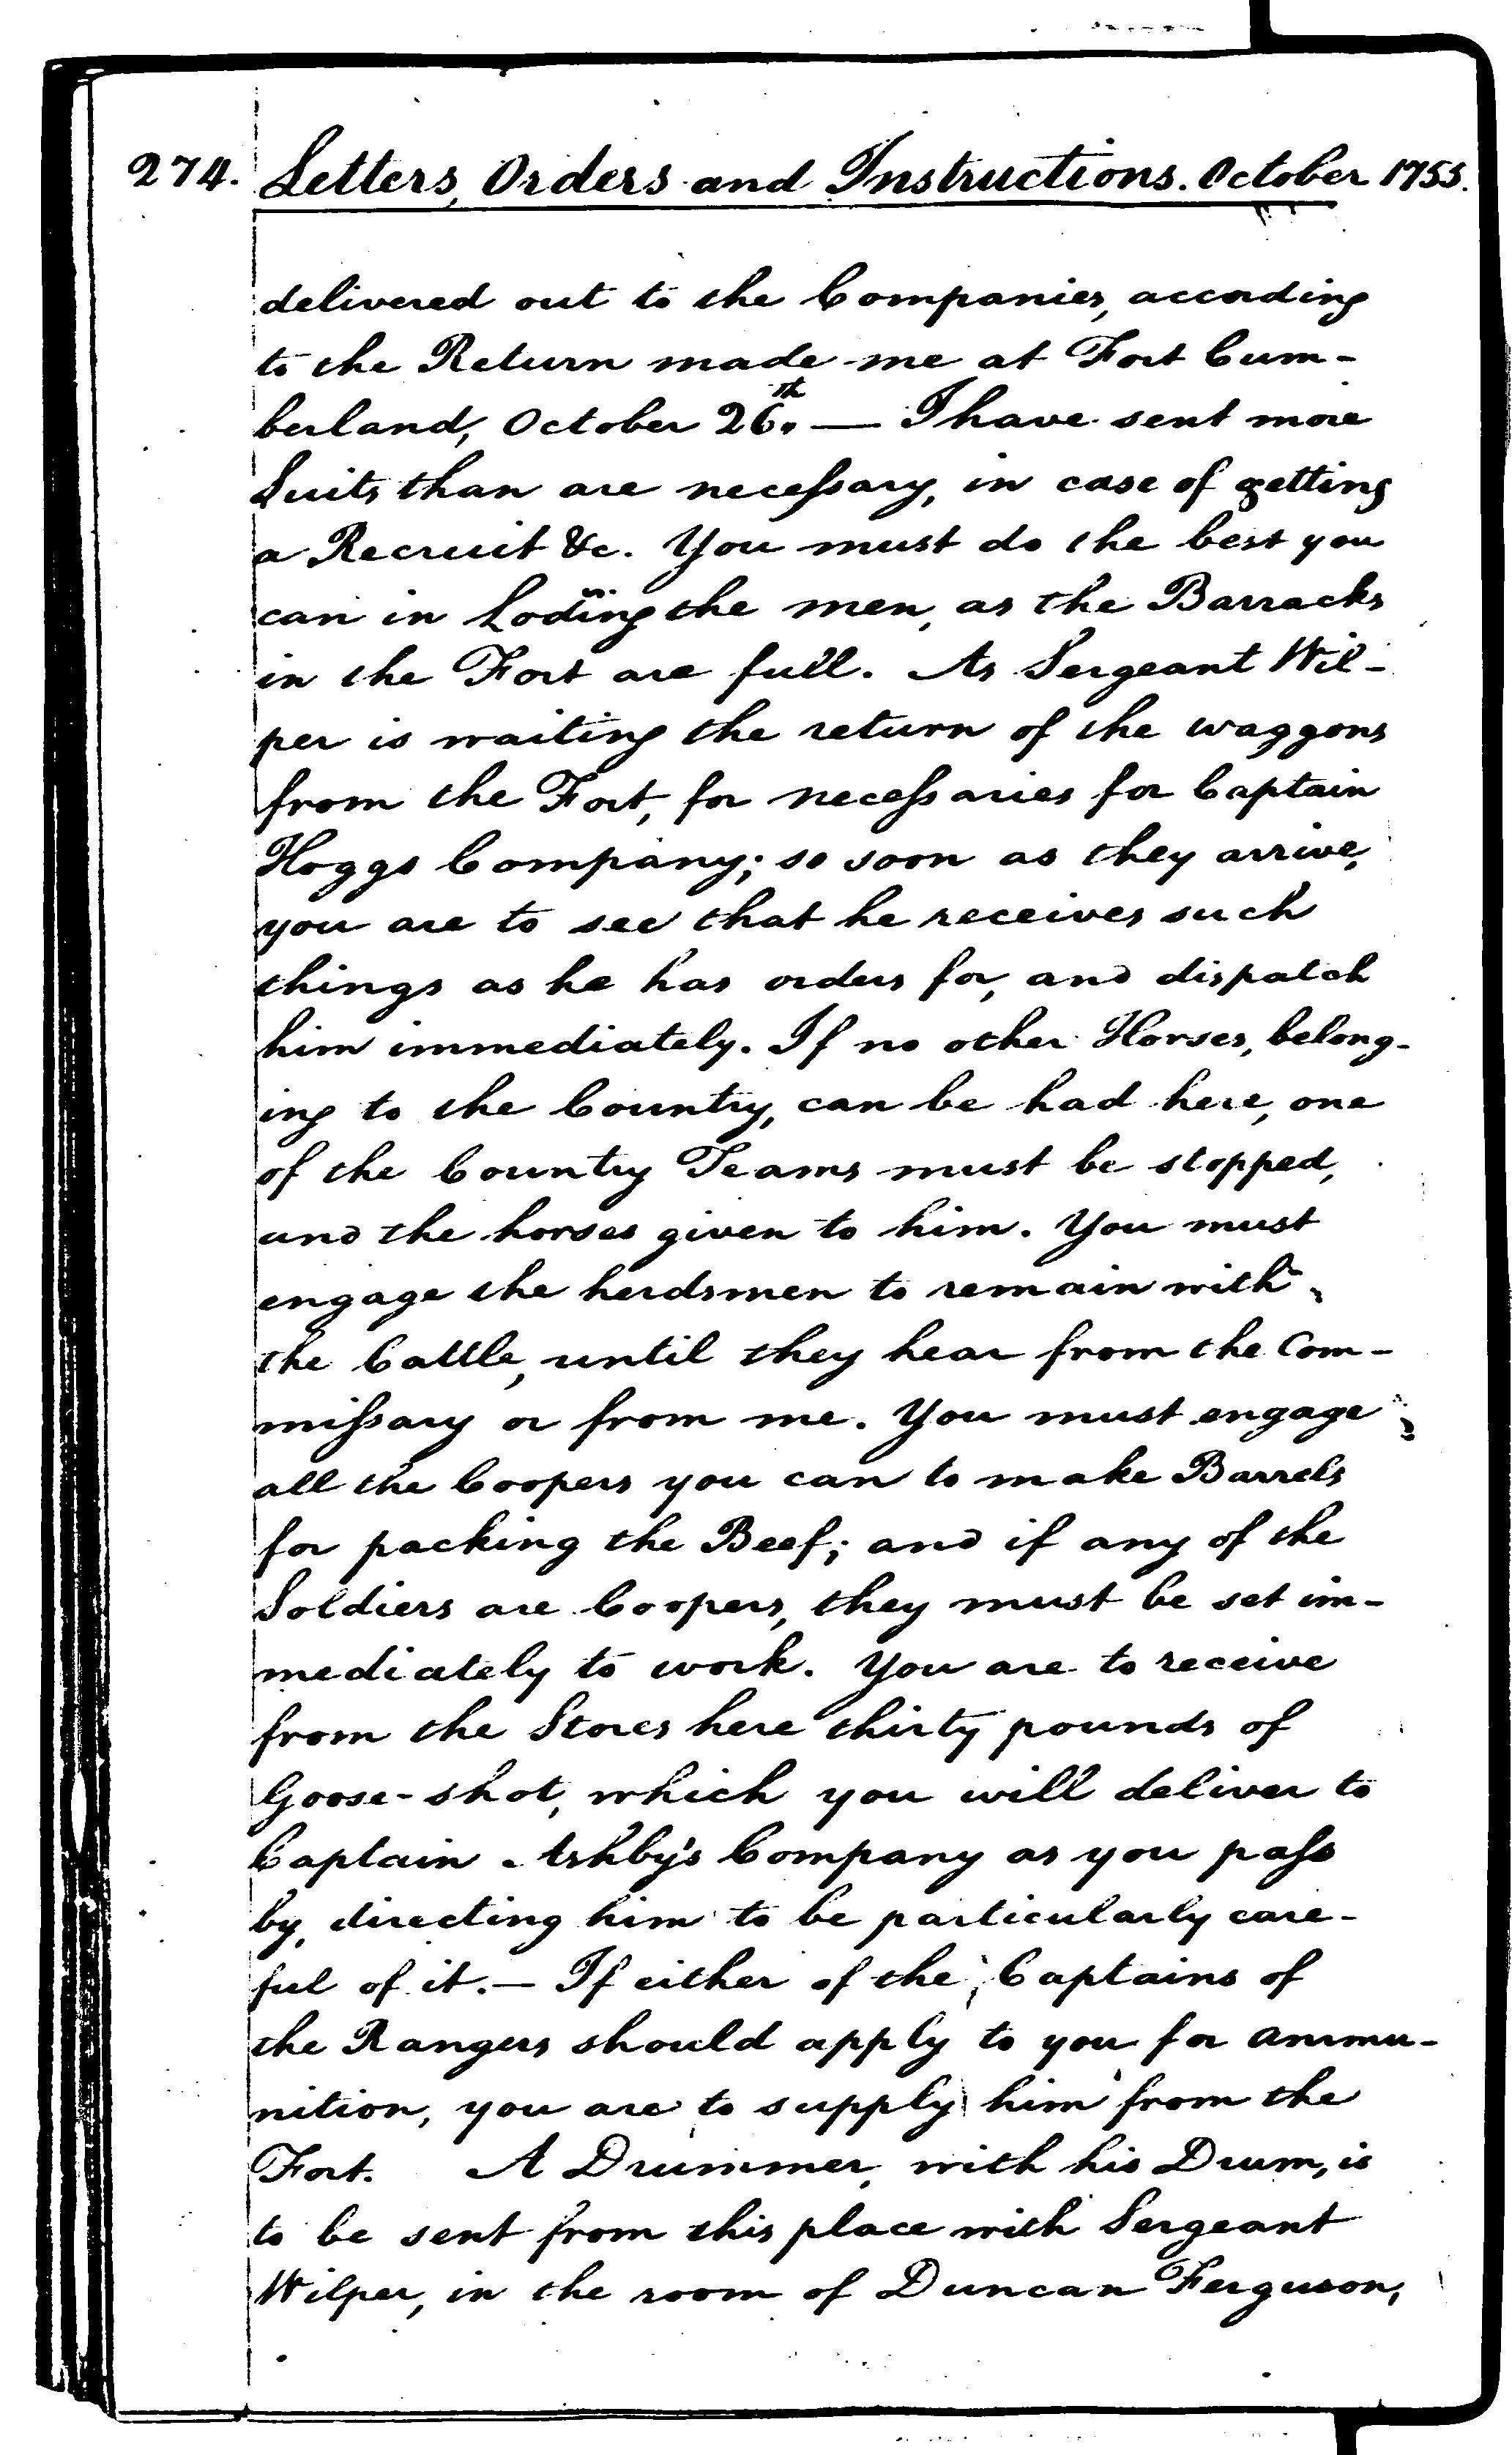 274. Letters, Orders and Instructions. October 1755.
delivered out to the Companies, according
to the Return made me at Fort Cum-
berland, October 26th. — I have sent more
Suits than are necessary, in case of getting
a Recruit &c. You must do the best you
can in Loding the men, as the Barracks
in the Fort are full. As Sergeant Wil-
per is waiting the return of the waggons
from the Fort, for necessaries for Captain
Hoggs Company; so soon as they arrive,
you are to see that he receives such
things as he has orders for, and dispatch
him immediately. If no other Horses, belong-
ing to the Country, can be had here, one
of the Country Teams must be stopped,
and the horses given to him. You must
engage the herdsmen to remain with
the Cattle, until they hear from the Com-
missary or from me. You must engage
all the Coopers you can to make Barrels
for packing the Beef; and if any of the
Soldiers are Coopers, they must be set im-
mediately to work. You are to receive
from the Stores here thirty pounds of
Goose-shot, which you will deliver to
Captain Ashby's Company as you pass
by, directing him to be particularly care-
ful of it. — If either of the Captains of
the Rangers should apply to you for ammu-
nition, you are to supply him from the
Fort. A Drummer, with his Drum, is
to be sent from this place with Sergeant
Wilper, in the room of Duncan Ferguson,